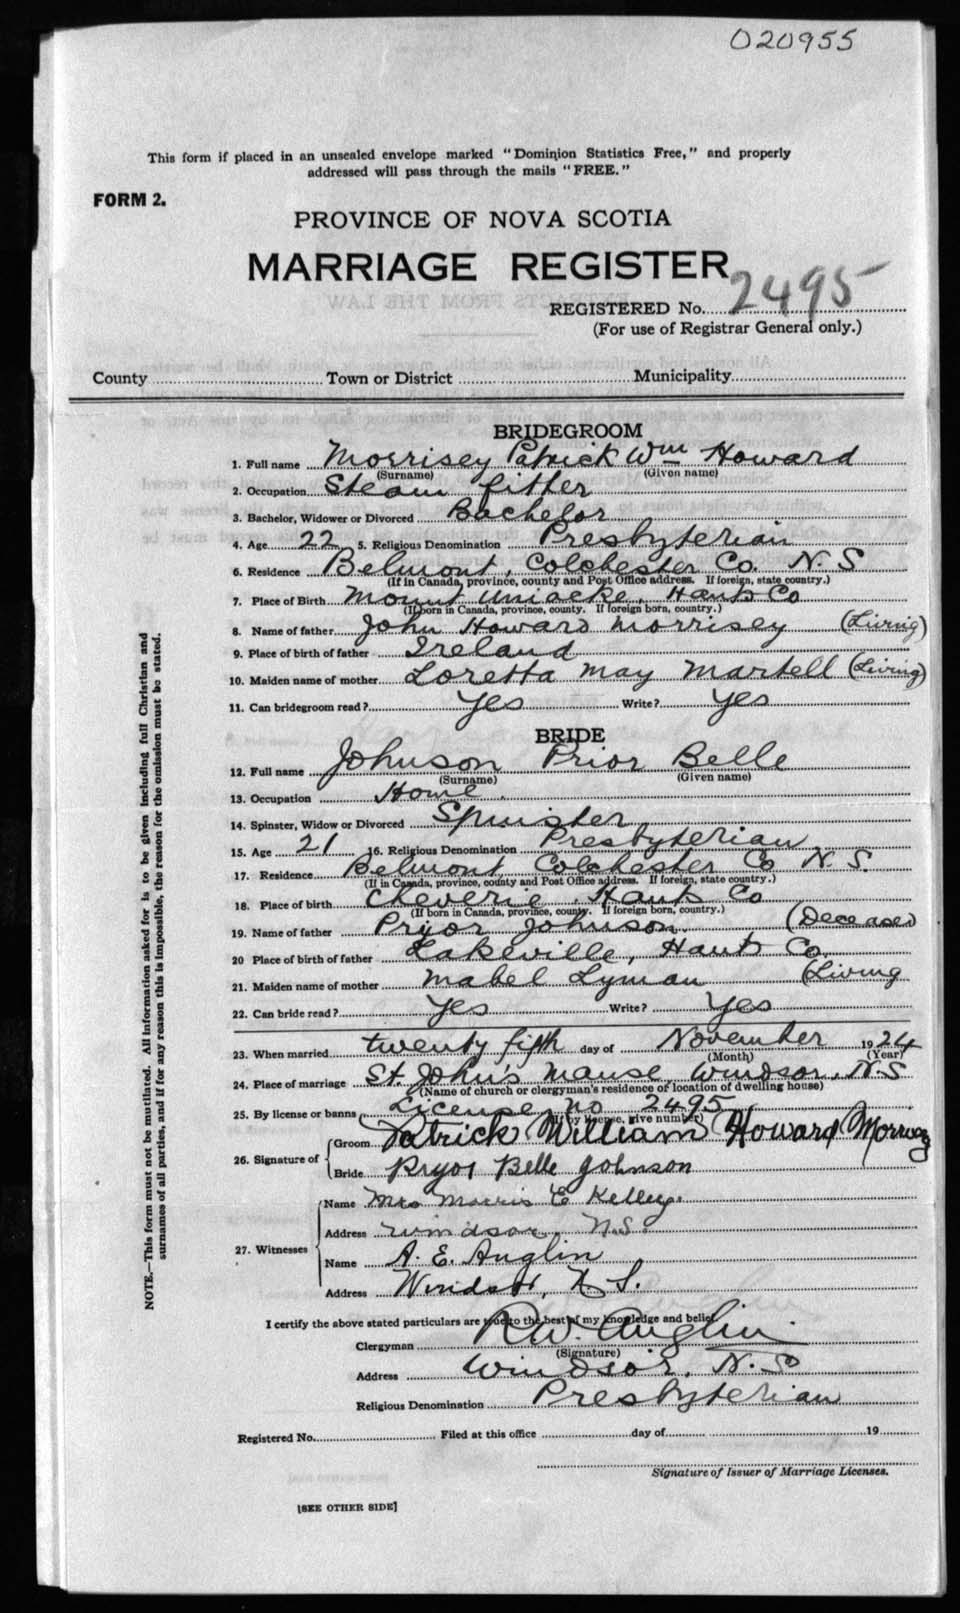 020955
This form if placed in an unsealed envelope marked "Dominion Statistics Free," and properly
addressed will pass through the mails "FREE."
FORM 2.
PROVINCE OF NOVA SCOTIA
MARRIAGE REGISTER
REGISTERED No. 2495
(For use of Registrar General only.)
County Town or District Municipality
BRIDEGROOM
1. Full name Morrisey Patrick Wm Howard
(Surname) (Given name)
2. Occupation Steam fitter
3. Bachelor, Widower or Divorced Bachelor
4. Age 22 5. Religious Denomination Presbyterian
6. Residence Belmont, Colchester Co. N.S
(If in Canada, province, county and Post Office address. If foreign, state country.)
7. Place of Birth Mount Uniacke, Hants Co
(If born in Canada, province, county. If foreign born, country.)
8. Name of father John Howard Morrisey (Living)
9. Place of birth of father Ireland
10. Maiden name of mother Loretta May Martell (Living)
11. Can bridegroom read? Yes Write? Yes
BRIDE
12. Full name Johnson Prior Belle
(Surname) (Given name)
13. Occupation Home
14. Spinster, Widow or Divorced Spinster
15. Age 21 16. Religious Denomination Presbyterian
17. Residence Belmont, Colchester Co N.S.
(If in Canada, province, county and Post Office address. If foreign, state country.)
18. Place of birth Cheverie, Hants Co
(If born in Canada, province, county. If foreign born, country.)
19. Name of father Pryor Johnson. (Deceased
20 Place of birth of father Lakeville, Hants Co.
21. Maiden name of mother Mabel Lyman (Living
22. Can bride read? Yes Write? Yes
23. When married twenty fifth day of November 1924
(Month) (Year)
24. Place of marriage St. John's Manse, Windsor, N.S
(Name of church or clergyman's residence or location of dwelling house)
25. By license or banns License, no 2495
(If by license, give number)
26. Signature of Groom Patrick William Howard
Bride Pryor Belle Johnson
27. Witnesses Name Mrs Morris E Kelley.
Address Windsor, N.S.
Name A. E. Anglin
Address Windsor, N.S.
I certify the above stated particulars are true to the best of my knowledge and belief.
Clergyman R.W. Anglin
(Signature)
Address Windsor, N.S
Religious Denomination Presbyterian
Registered No. Filed at this office day of 19
Signature of Issuer of Marriage Licenses.
[SEE OTHER SIDE]
NOTE.—This form must not be mutilated. All information asked for is to be given including full Christian and
surnames of all parties, and if for any reason this is impossible, the reason for the omission must be stated.